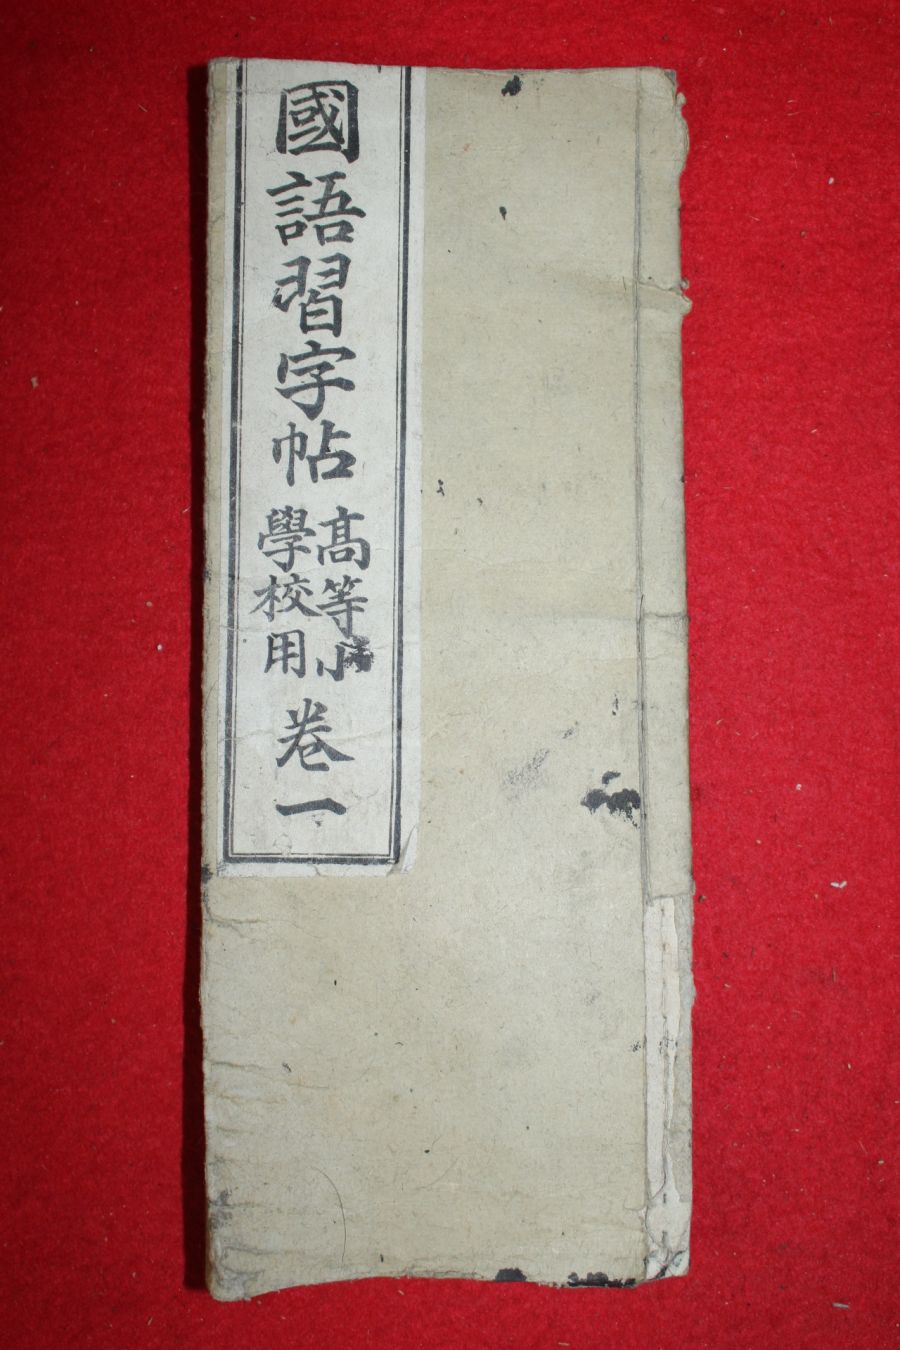 國語習字帖
高等小
學校用
卷一